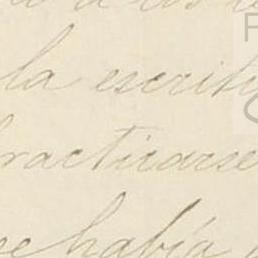 la escritu
racticarse
se había